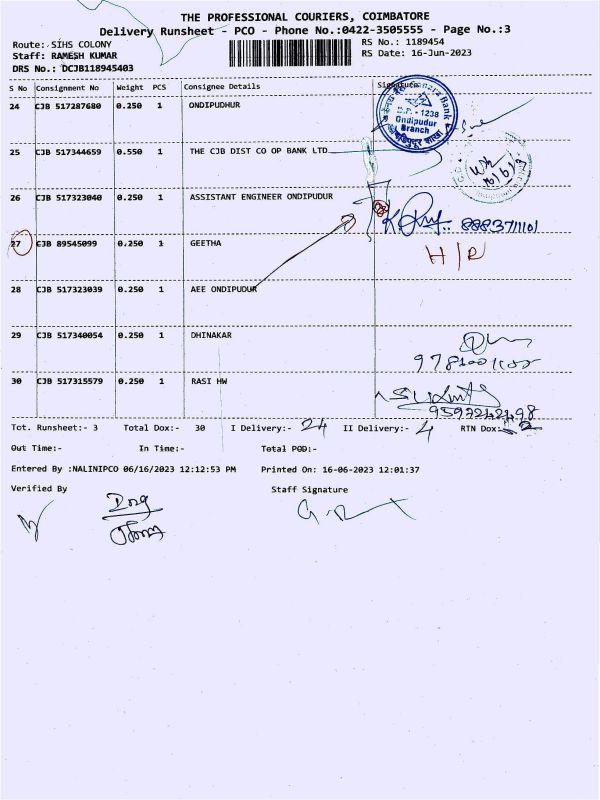 THE PROFESSIONAL COURIERS, COIMBATORE
Delivery Runsheet - PCO - Phone No.:0422-3505555 - Page No.:3
Route: SIHS COLONY
RS No.: 1189454
Staff: RAMESH KUMAR
RS Date: 16-Jun-2023
DRS No.: DCJB118945403
S No Consignment No Weight PCS Consignee Details Signature
24 CJB 517287680 0.250 1 ONDIPUDHUR
D.P. - 1238
Ondipudur
Branch
25 CJB 517344659 0.550 1 THE CJB DIST CO OP BANK LTD
16/6/23
26 CJB 517323040 0.250 1 ASSISTANT ENGINEER ONDIPUDUR
8883711101
27 CJB 89545099 0.250 1 GEETHA
H/R
28 CJB 517323039 0.250 1 AEE ONDIPUDUR
29 CJB 517340054 0.250 1 DHINAKAR
30 CJB 517315579 0.250 1 RASI HW
Tot. Runsheet:- 3 Total Dox:- 30 I Delivery:- 24 II Delivery:- 4 RTN Dox:- 2
Out Time:- In Time:- Total POD:-
Entered By :NALINIPCO 06/16/2023 12:12:53 PM Printed On: 16-06-2023 12:01:37
Verified By Staff Signature